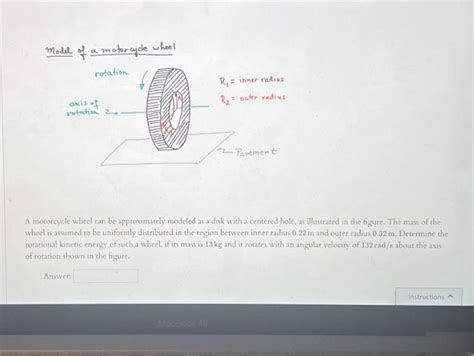 Model of a motorcycle wheel
rotation
R₁ = inner radius
axis of
rotation
R₂ = outer radius
Pavement
A motorcycle wheel can be approximately modeled as a disk with a centered hole, as illustrated in the figure. The mass of the
wheel is assumed to be uniformly distributed in the region between inner radius 0.22 m and outer radius 0.32 m. Determine the
rotational kinetic energy of such a wheel, if its mass is 13 kg and it rotates with an angular velocity of 132 rad/s about the axis
of rotation shown in the figure.
Answer:
Instructions
MacBook Air